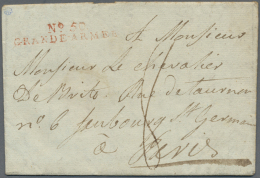 No 5
GRANDE ARMÉE
A Monsieur
Monsieur Le chevalier
De Brito Rue de tournon
no. 6 faubourg St Germain
à Paris